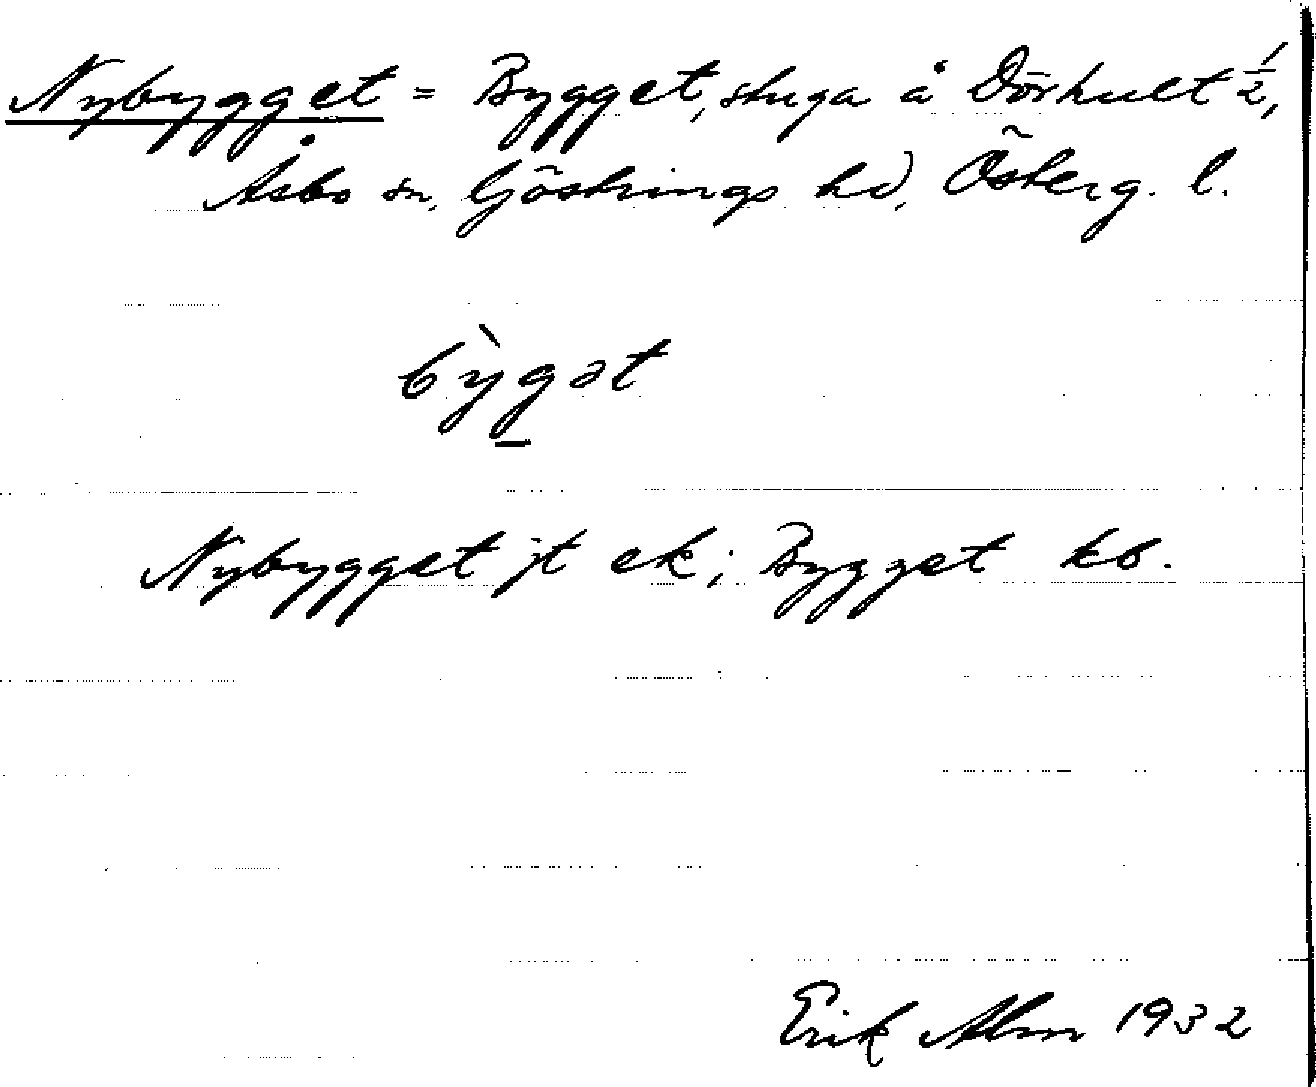 Nybygget = Bygget, stuga å Dörhult ½,
Åsbo sn, Göstrings hd, Österg. l.
bỳgət
Nybygget jt ek; Bygget kb.
Erik Alm 1932